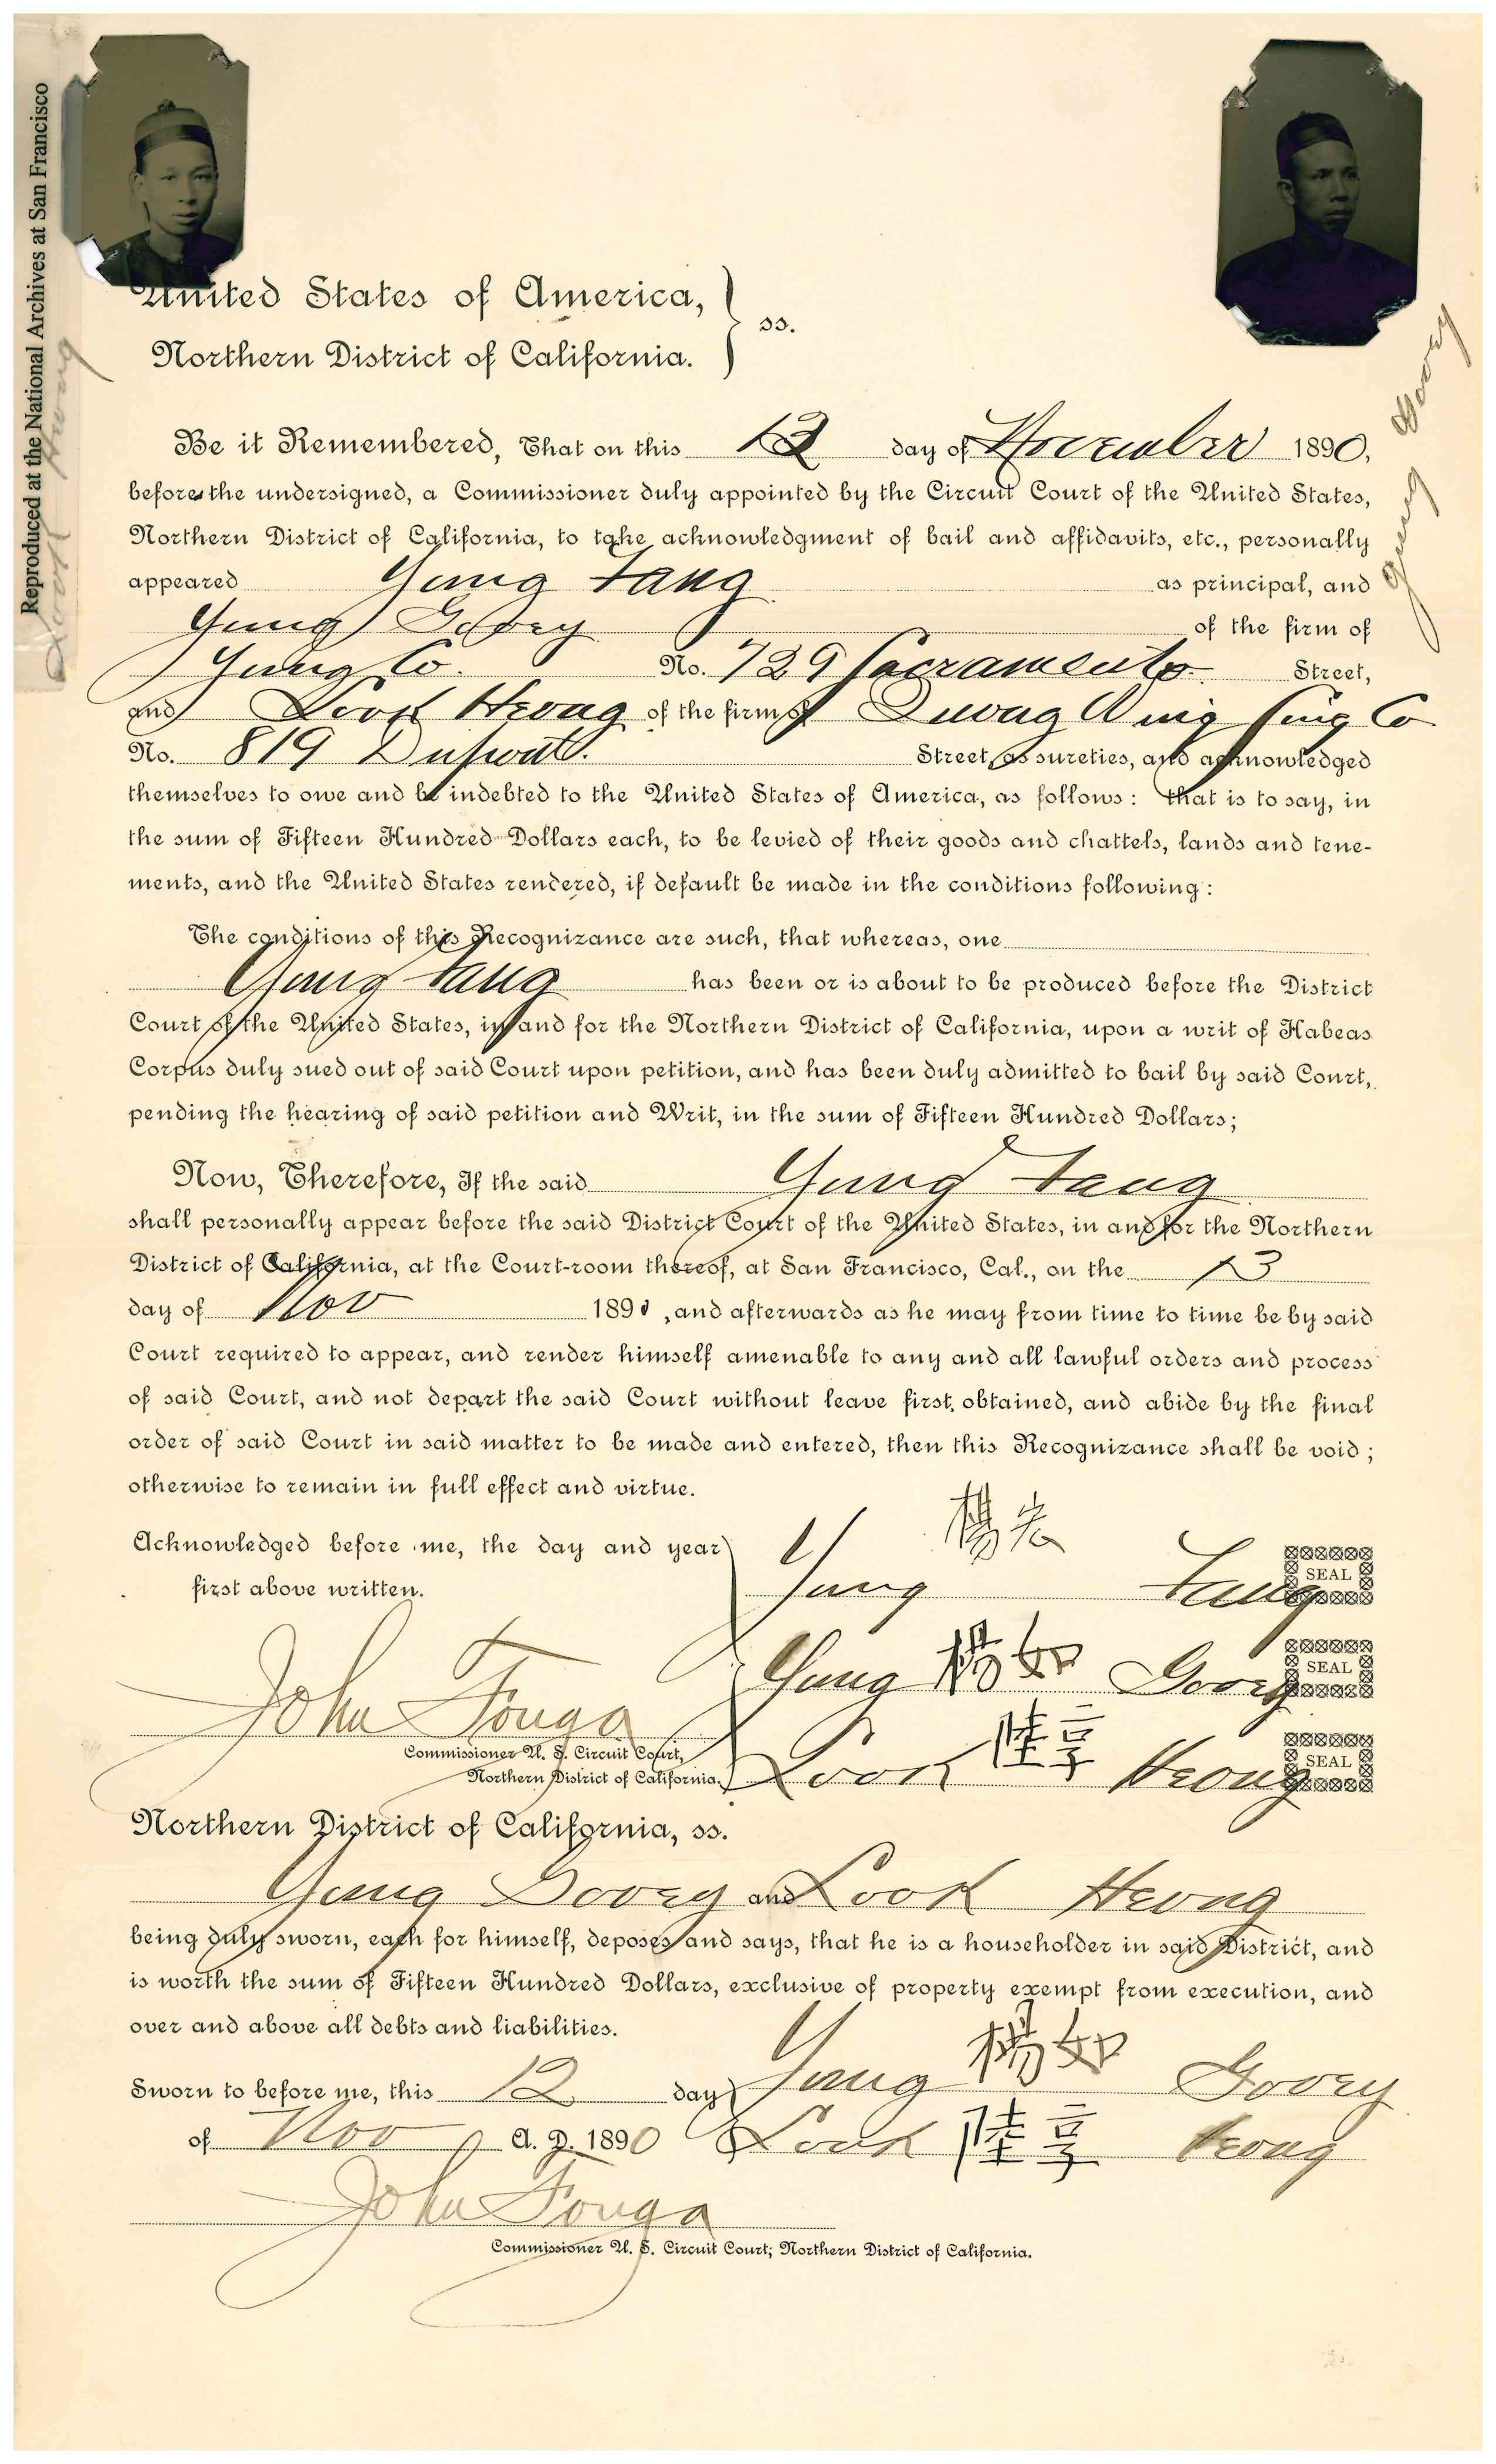 Reproduced at the National Archives at San Francisco
Look Heong
Yung Goory
United States of America,
Northern District of California.
} ss.
Be it Remembered, That on this 12 day of November 1890,
before the undersigned, a Commissioner duly appointed by the Circuit Court of the United States,
Northern District of California, to take acknowledgment of bail and affidavits, etc., personally
appeared Yung Tang as principal, and
Yung Goory of the firm of
Yung Co. No. 729 Sacramento Street,
and Look Heong of the firm of Quong Wing Sing Co
No. 819 Dupont. Street, as sureties, and acknowledged
themselves to owe and be indebted to the United States of America, as follows: that is to say, in
the sum of Fifteen Hundred Dollars each, to be levied of their goods and chattels, lands and tene-
ments, and the United States rendered, if default be made in the conditions following:
The conditions of this Recognizance are such, that whereas, one
Yung Tang has been or is about to be produced before the District
Court of the United States, in and for the Northern District of California, upon a writ of Habeas
Corpus duly sued out of said Court upon petition, and has been duly admitted to bail by said Court,
pending the hearing of said petition and Writ, in the sum of Fifteen Hundred Dollars;
Now, Therefore, If the said Yung Tang
shall personally appear before the said District Court of the United States, in and for the Northern
District of California, at the Court-room thereof, at San Francisco, Cal., on the 13
day of Nov 1890, and afterwards as he may from time to time be by said
Court required to appear, and render himself amenable to any and all lawful orders and process
of said Court, and not depart the said Court without leave first obtained, and abide by the final
order of said Court in said matter to be made and entered, then this Recognizance shall be void;
otherwise to remain in full effect and virtue.
Acknowledged before me, the day and year
first above written.
John Fouga
Commissioner U. S. Circuit Court,
Northern District of California.
楊宏
Yung Tang SEAL
Yung 楊如 Goory SEAL
Look 陸享 Heong SEAL
Northern District of California, ss.
Yung Goory and Look Heong
being duly sworn, each for himself, deposes and says, that he is a householder in said District, and
is worth the sum of Fifteen Hundred Dollars, exclusive of property exempt from execution, and
over and above all debts and liabilities.
Sworn to before me, this 12 day
of Nov A. D. 1890
Yung 楊如 Goory
Look 陸享 Heong
John Fouga
Commissioner U. S. Circuit Court, Northern District of California.